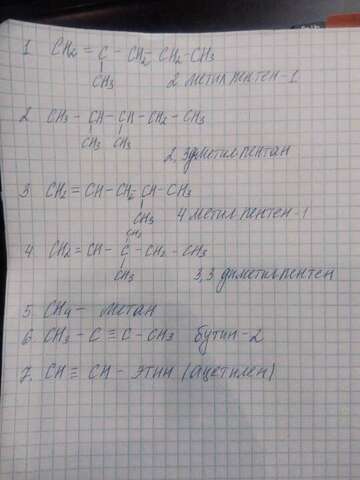 1. CH2 = C - CH2 - CH2 - CH3
CH3
2 метил пентен-1
2. CH3 - CH - CH - CH2 - CH3
CH3 CH3
2,3диметилпентан
3. CH2 = CH - CH2 - CH - CH3
CH3
4 метил пентен-1
CH3
4. CH2 = CH - C - CH2 - CH3
CH3
3,3 диметилпентен
5. CH4 - метан
6. CH3 - C ≡ C - CH3 бутин-2
7. CH ≡ CH - этин (ацетилен)